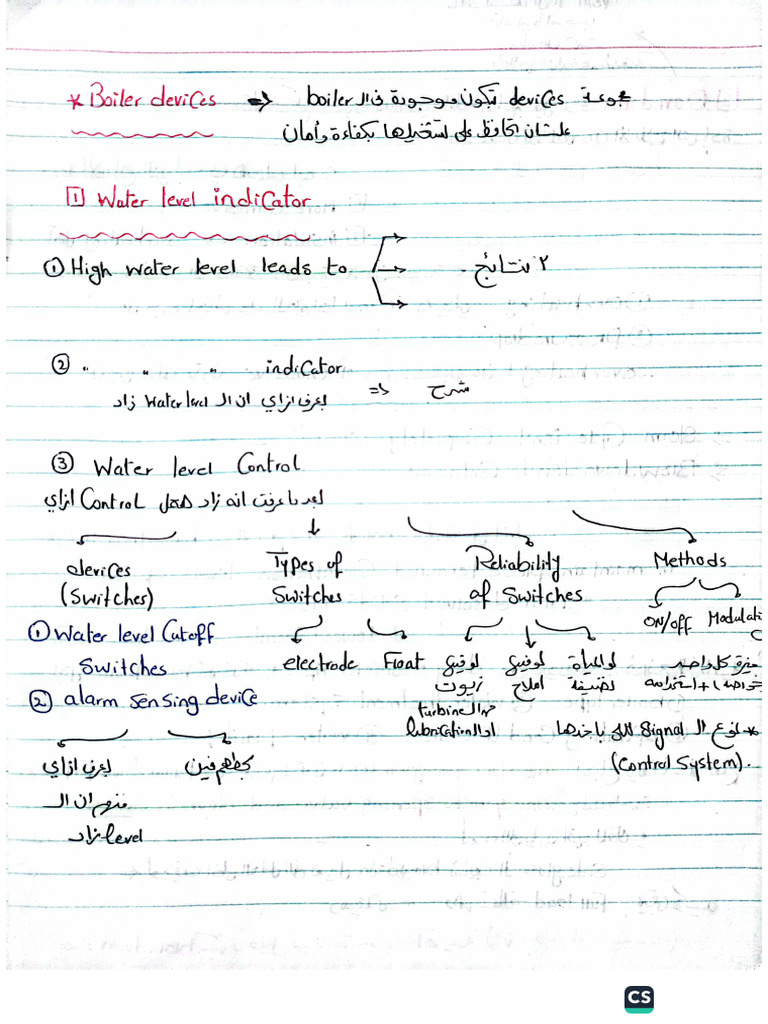 * Boiler devices => مجموعة devices بتكون موجودة في ال boiler
علشان احافظ على تشغيلها بكفاءة وأمان
1 Water level indicator
① High water level leads to ٣ نتائج.
② " " " indicator
بعرف ازاي ان ال Water level زاد => شرح
③ Water level Control
بعد ما عرفت انه زاد هعمل Control ازاي
devices Types of Reliability Methods
(Switches) Switches of Switches ON/off Modulati
① Water level Cutoff electrode Float لو فيه لو فيه لو المياة ميزة كل واحد
Switches زيوت املاح نضيفة خواصه + استخدامه
② alarm sensing device من ال turbine
او ال lubrication * نوع ال Signal اللي باخدها
بعرف ازاي بحطهم فين (Control System).
منهم ان ال
level زاد
CS